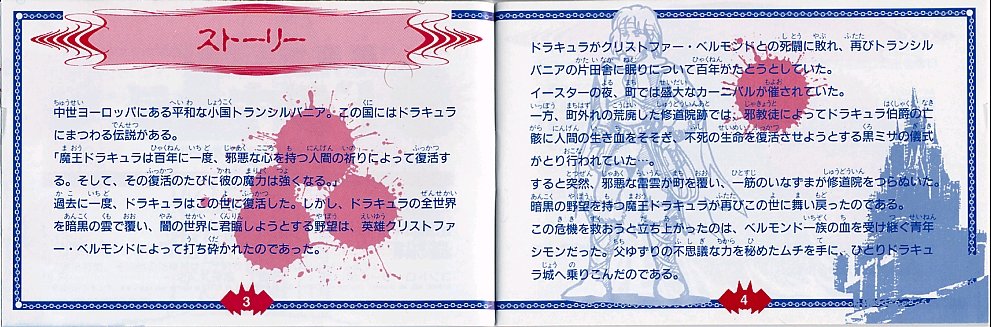 ストーリー
中世ヨーロッパにある平和な小国トランシルバニア。この国にはドラキュラ
にまつわる伝説がある。
「魔王ドラキュラは百年に一度、邪悪な心を持つ人間の祈りによって復活す
る。そして、その復活のたびに彼の魔力は強くなる。」
過去に一度、ドラキュラはこの世に復活した。しかし、ドラキュラの全世界
を暗黒の雲で覆い、闇の世界に君臨しようとする野望は、英雄クリストファ
ー・ベルモンドによって打ち砕かれたのであった。
3
ドラキュラがクリストファー・ベルモンドとの死闘に敗れ、再びトランシル
バニアの片田舎に眠りについて百年がたとうとしていた。
イースターの夜、町では盛大なカーニバルが催されていた。
一方、町外れの荒廃した修道院跡では、邪教徒によってドラキュラ伯爵の亡
骸に人間の生き血をそそぎ、不死の生命を復活させようとする黒ミサの儀式
がとり行われていた…。
すると突然、邪悪な雷雲が町を覆い、一筋のいなずまが修道院をつらぬいた。
暗黒の野望を持つ魔王ドラキュラが再びこの世に舞い戻ったのである。
この危機を救おうと立ち上がったのは、ベルモンド一族の血を受け継ぐ青年
シモンだった。父ゆずりの不思議な力を秘めたムチを手に、ひとりドラキュ
ラ城へ乗りこんだのである。
4